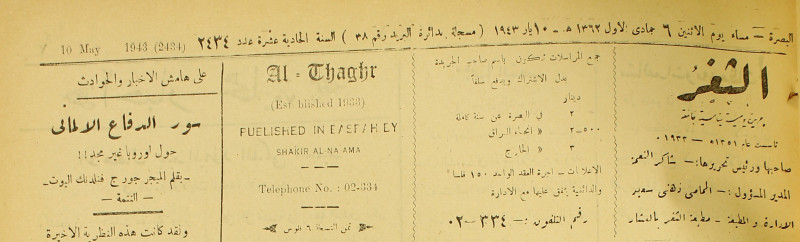 البصرة — مساء يوم الاثنين ٦ جمادى الاول ١٣٦٢ هـ — ١٠ ايار ١٩٤٣ ( مسجلة بدائرة البريد رقم ٣٨ ) السنة الحادية عشرة عدد ٢٤٣٤
10 May 1943 (2434)
الثغر
جريدة يومية سياسية جامعة
تأسست عام ١٣٥١ هـ — ١٩٣٣ م
صاحبها ورئيس تحريرها: — شاكر النعمة
المدير المسؤول: — المحامي
الادارة والمطبعة — مطبعة الثغر بالعشار
جميع المراسلات تكون باسم صاحب الجريدة
بدل الاشتراك ويدفع سلفاً
دينار
٢ في البصرة عن سنة كاملة
٢—٥٠٠ « انحاء العراق
٣ « الخارج
الاعلانات — اجرة العقد الواحد ١٥٠ فلساً
والدائمية يتفق عليها مع الادارة
رقم التلفون: — ٣٣٤—٠٢
Al - Thaghr
(Established 1933)
PUBLISHED IN BASRAH BY
SHAKIR AL-NAAMA
Telephone No. : 02-334
ثمن النسخة ٦ فلوس
على هامش الاخبار والحوادث
سور الدفاع الالماني
حول اوروبا غير مجد!!
— بقلم الميجر جورج فيلدنك اليوت —
— التتمة —
ولقد كانت هذه النظرية الاخيرة